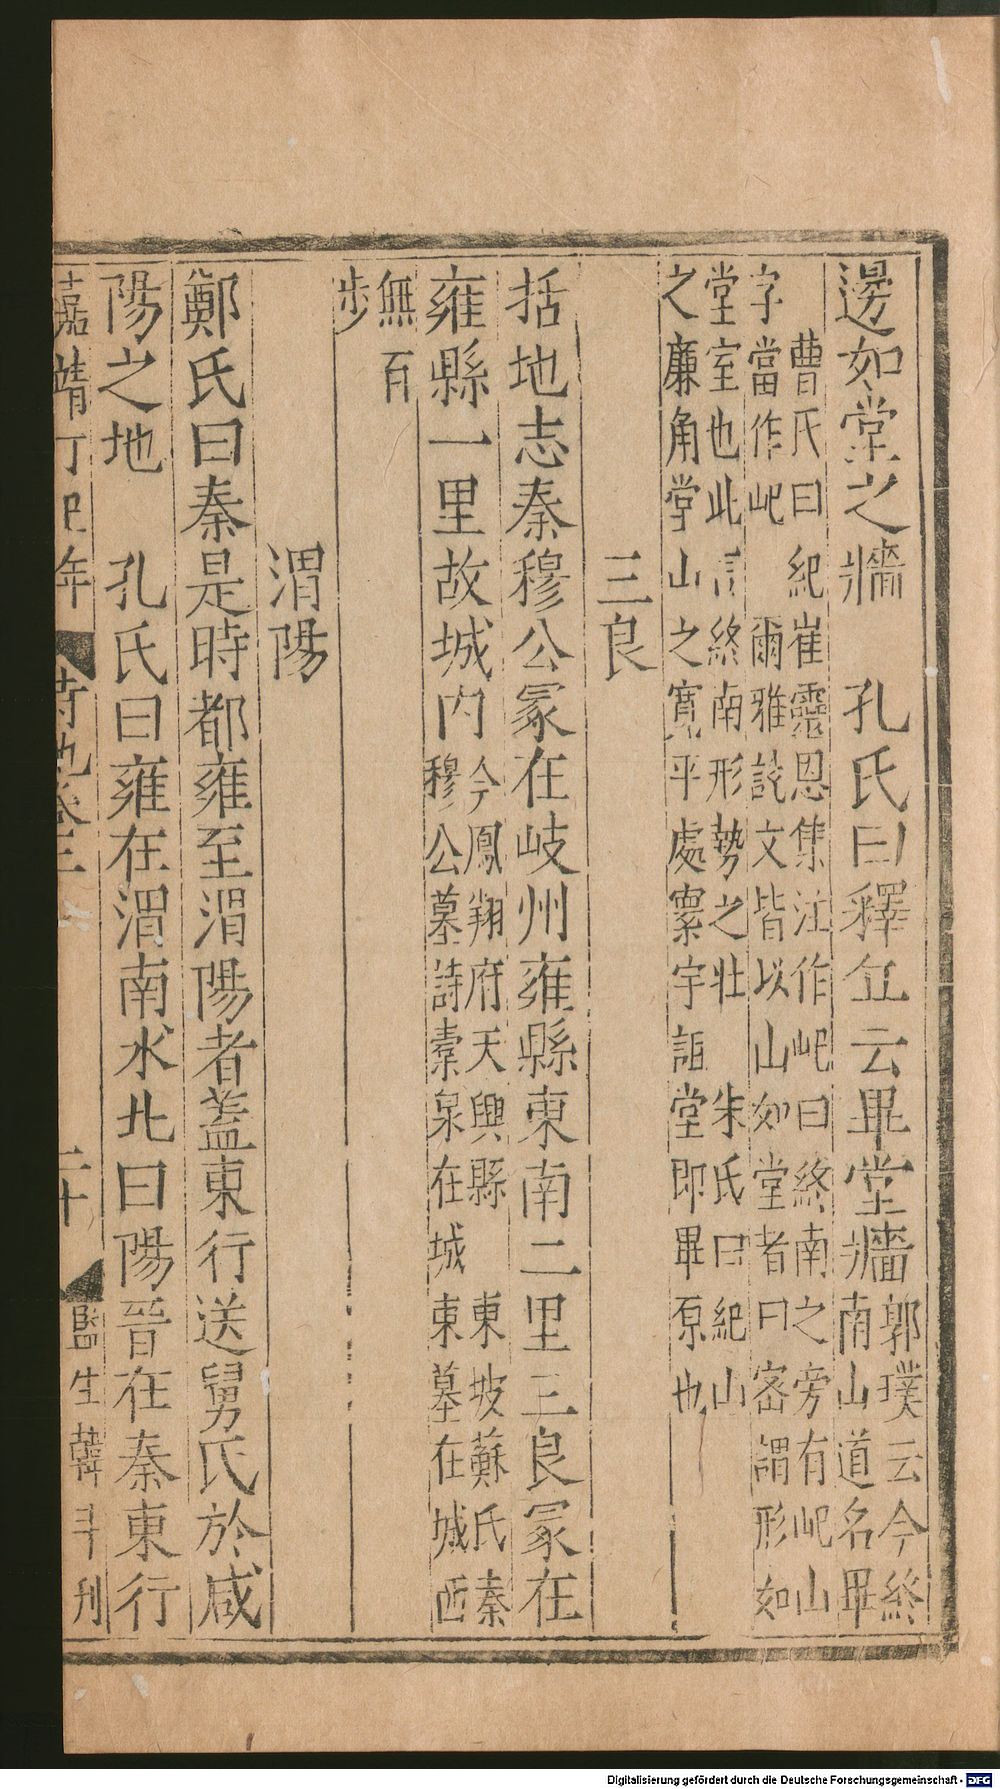 邊如堂之牆　孔氏曰釋丘云畢堂牆郭璞云今終
南山道名畢
曹氏曰　紀崔靈恩集注作屺曰終南之旁有屺山
字當作屺　爾雅說文皆以山如堂者曰密謂形如
堂室也此言終南形勢之壯　朱氏曰紀山
之廉角堂山之寬平處稟宇詛堂即畢原也
三良
括地志秦穆公冢在岐州雍縣東南二里三良冢在
雍縣一里故城內今鳳翔府天興縣　東坡蘇氏秦
穆公墓詩橐泉在城東墓在城西
無百
步
渭陽
鄭氏曰秦是時都雍至渭陽者蓋東行送舅氏於咸
陽之地　孔氏曰雍在渭南水北曰陽晉在秦東行
嘉靖丁巳年　詩地卷三　二十　監生韓斗刊
Digitalisierung gefördert durch die Deutsche Forschungsgemeinschaft - DFG